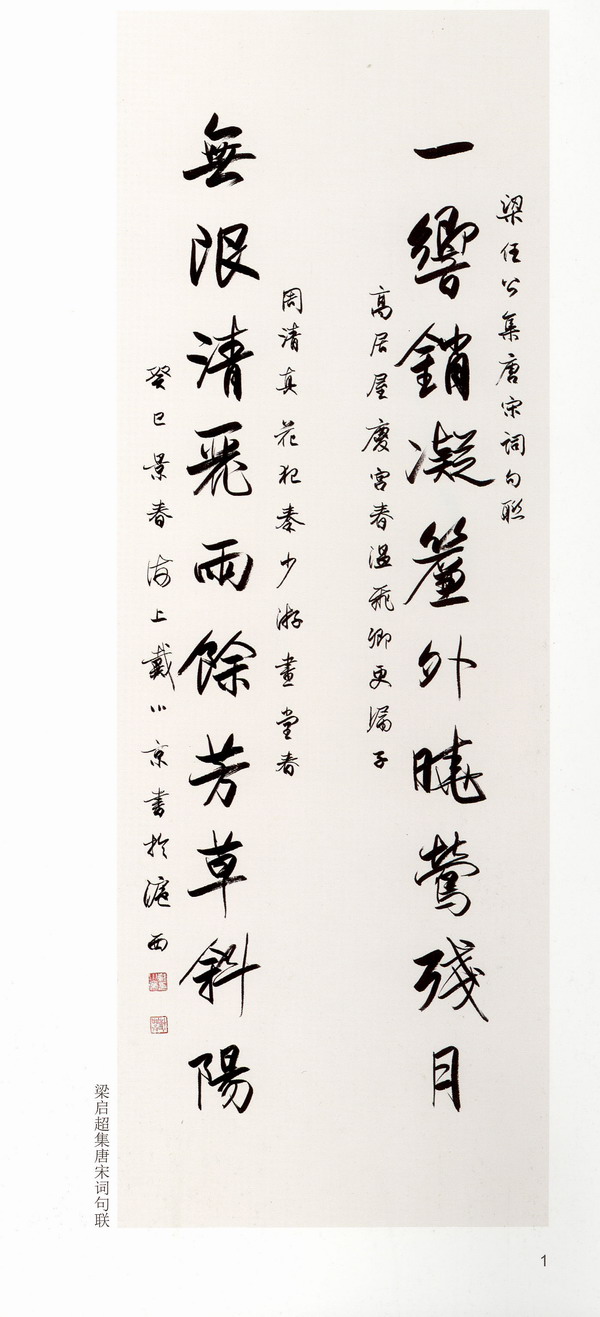 梁任公集唐宋詞句聯
一響銷凝簾外曉鶯殘月
高居屋慶宮春溫飛卿更漏子
周清真花犯秦少游畫堂春
無限清麗雨餘芳草斜陽
癸巳景春海上戴小京書於滬西
梁启超集唐宋词句联
1